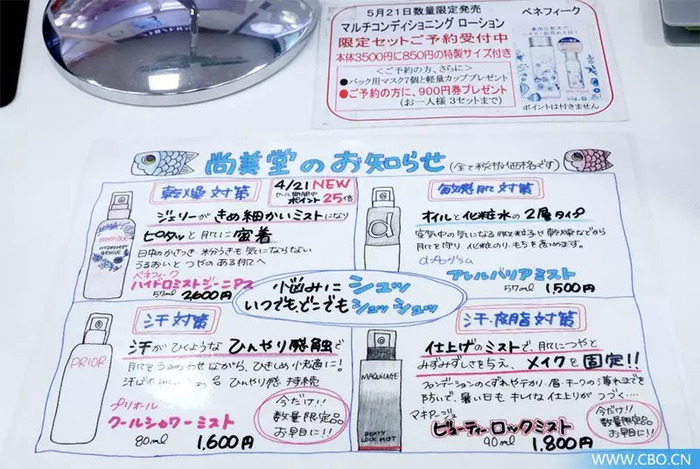 5月21日数量限定発売
ベネフィーク
マルチコンディショニング ローション
限定セットご予約受付中
本体3500円に850円の特製サイズ付き
<ご予約の方、さらに>
●パック用マスク7個と軽量カッププレゼント
●ご予約の方に、900円券プレゼント
(お一人様 3セットまで)
ポイントは付きません
尚美堂のお知らせ(全て税抜価格です)
乾燥対策
4/21 NEW
ポイント25倍
ジェリーがきめ細かいミストになり
ピタッと肌に密着
日中のかさつき・粉ふきも気にならない
うるおいとつやのある肌へ
ベネフィーク
ハイドロミストジーニアス
57ml 2600円
対策
オイルと化粧水の2層タイプ
空気中の気になる
乾燥などから
肌を守り 化粧のり、もちを高めます。
dプログラム
アレルバリアミスト
57ml 1,500円
小悩みにシュッ
いつでもどこでもシュッシュッ
汗対策
汗がひくようなひんやり感触で
肌をうるおわせながら、ひきしめ小知適に!
ひんやり感 持続
PRIOR
プリオール
クールシャワーミスト
80ml 1,600円
今だけ!!
数量限定品
お早目に!!
汗・皮脂対策
仕上げのミストで、肌につやと
みずみずしさを与え、メイクを固定!!
ファンデーションのくずれやテカリ/眉・チークの薄れまでを
防いで、暑い日も キレイな仕上がり つづく…
MAQUILLAGE
BEAUTY LOCK MIST
マキアージュ
ビューティーロックミスト
90ml 1,800円
今だけ!!
数量限定品
お早目に!!
WWW.CBO.CN